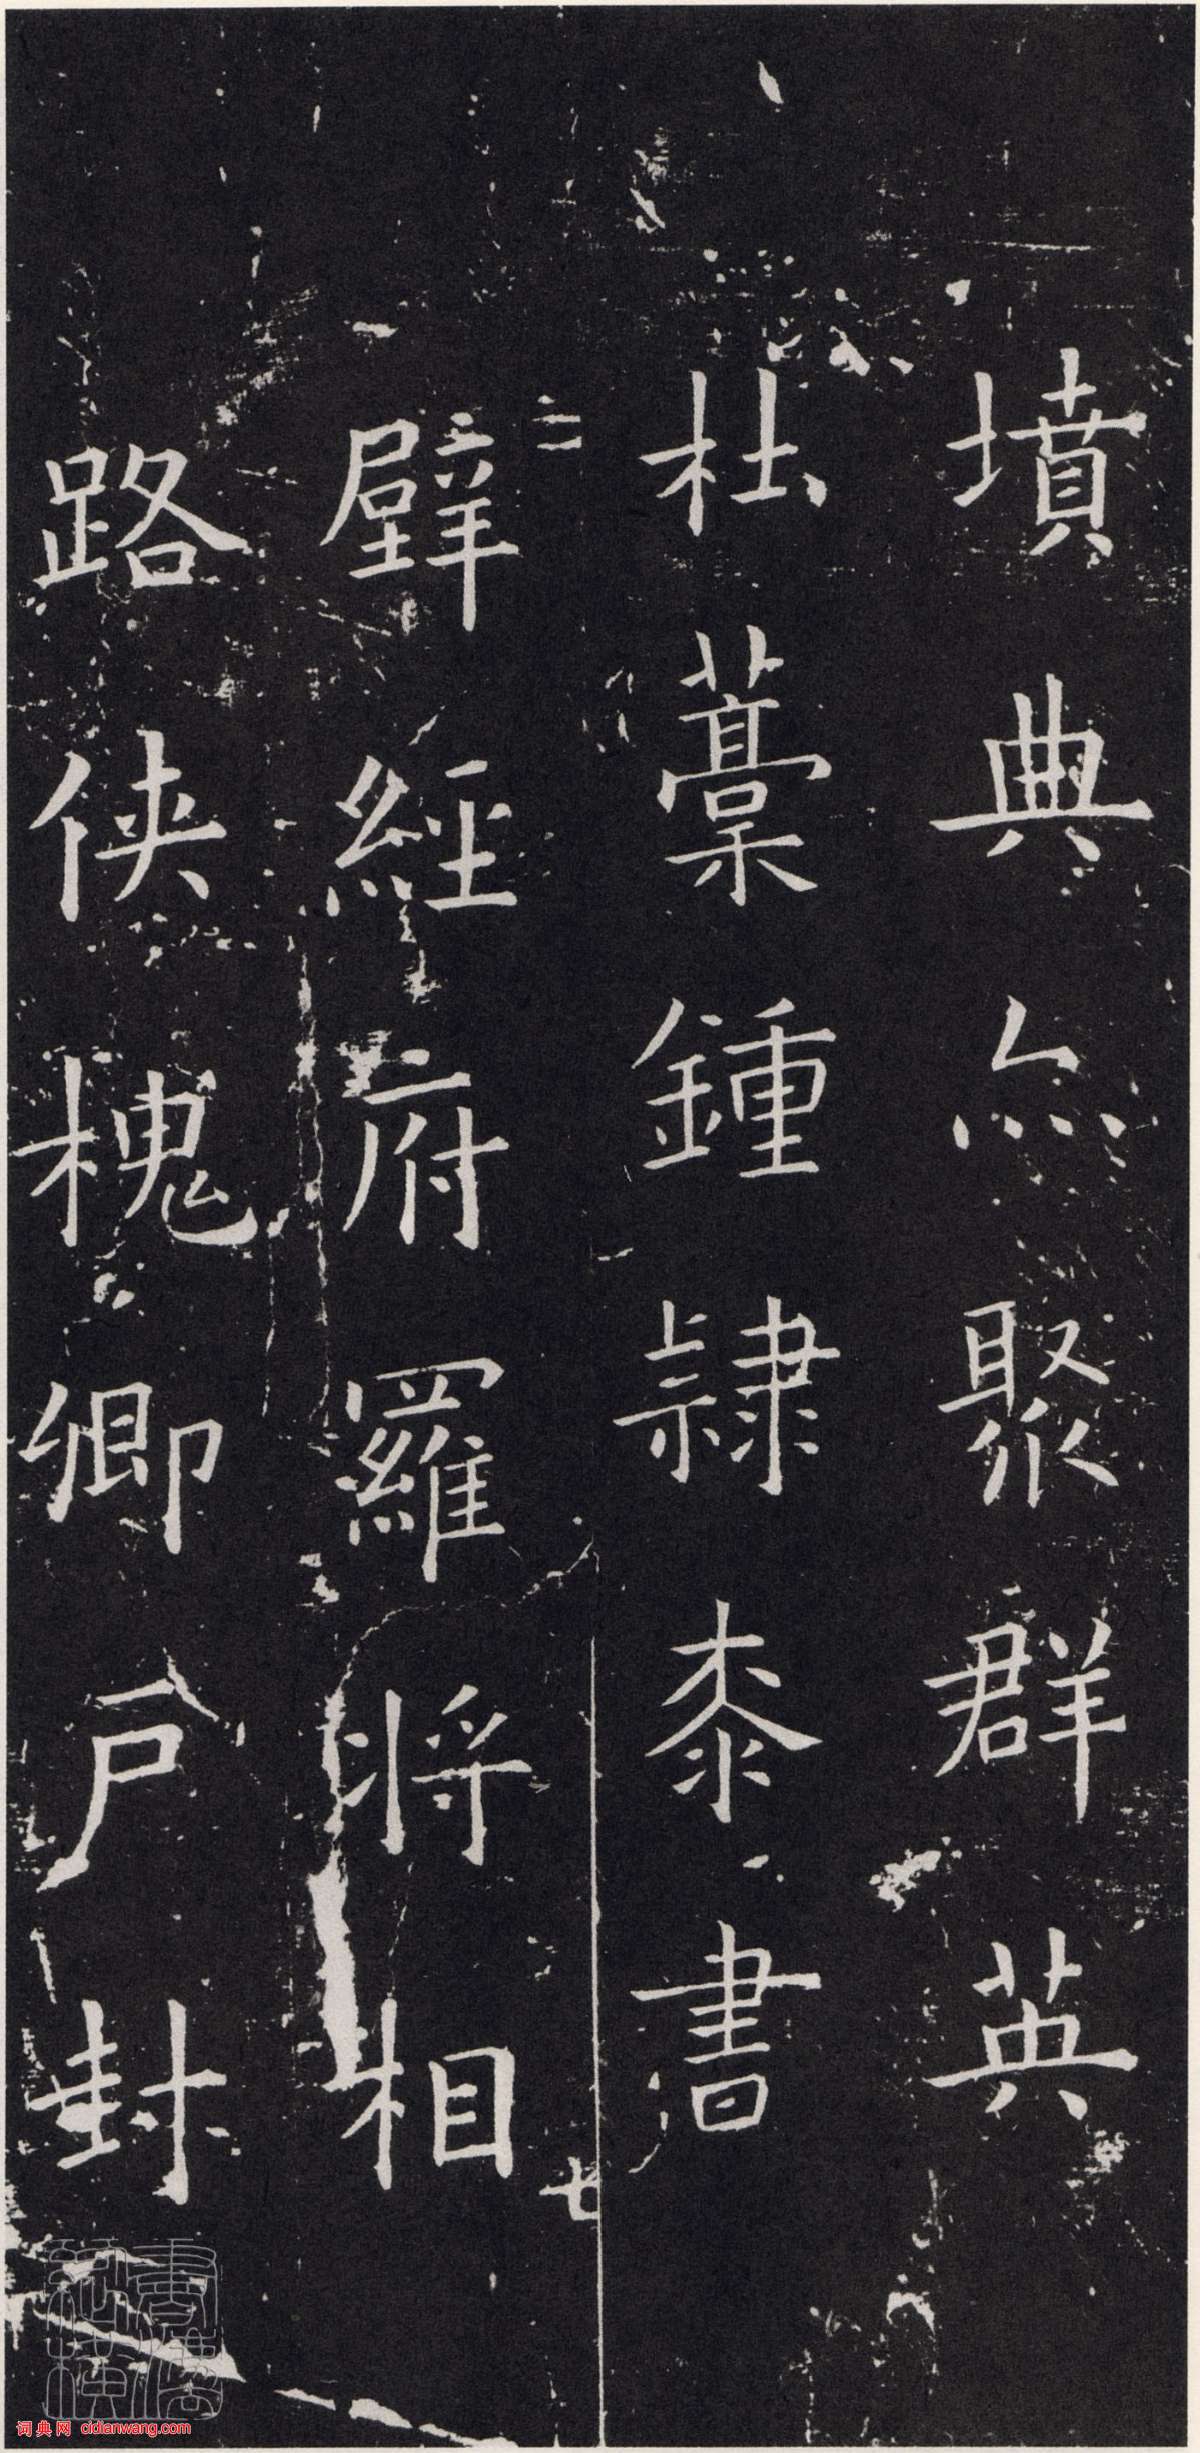 墳典亦聚群英
杜藁鍾隸桼書
壁經府羅將相
路俠槐卿戶封
词典网 cidianwang.com